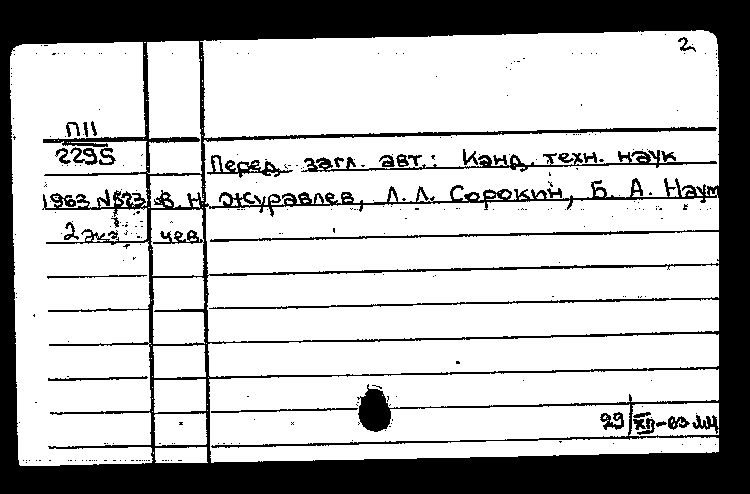 2
П11
2295
Перед загл. авт.: Канд. техн. наук
1963 №523 В. Н. Журавлев, Л. Л. Сорокин, Б. А. Наум
2 экз чев.
29/XII-63